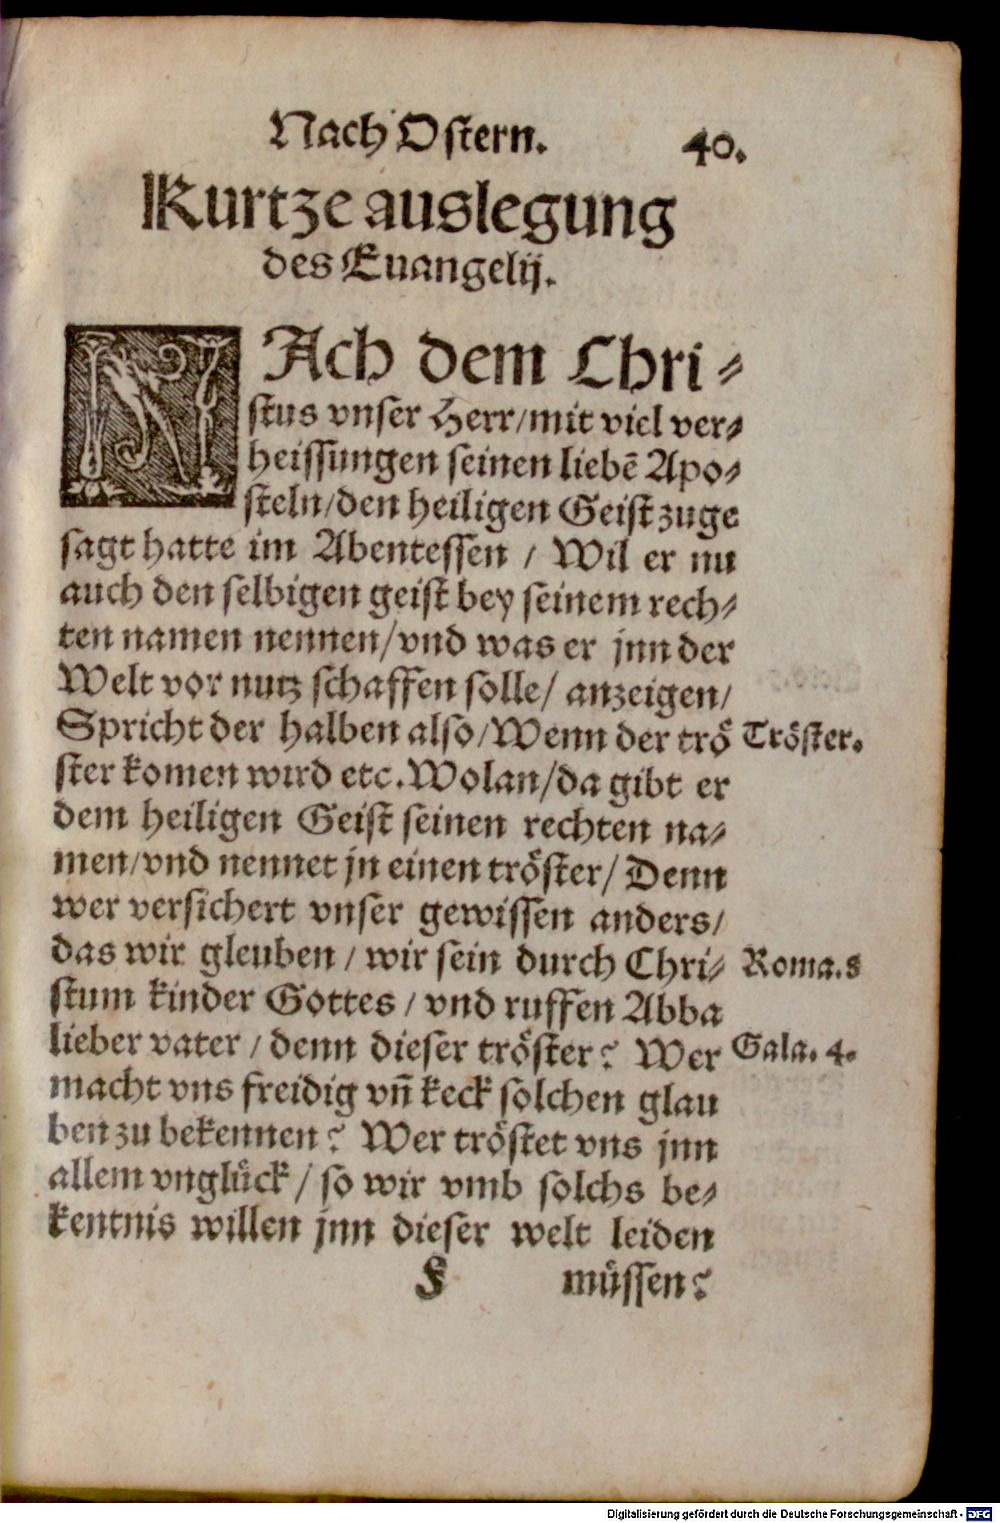 Nach Ostern. 40.
Kurtze auslegung
des Euangelij.
NAch dem Chri⸗
stus vnser Herr/mit viel ver⸗
heissungen seinen liebē Apo⸗
steln/den heiligen Geist zuge
sagt hatte im Abentessen / Wil er nu
auch den selbigen geist bey seinem rech⸗
ten namen nennen/vnd was er jnn der
Welt vor nutz schaffen solle/ anzeigen/
Spricht der halben also/Wenn der trö Tröster.
ster komen wird etc.Wolan/da gibt er
dem heiligen Geist seinen rechten na⸗
men/vnd nennet jn einen tröster/ Denn
wer versichert vnser gewissen anders/
das wir gleuben / wir sein durch Chri⸗ Roma.8
stum kinder Gottes / vnd ruffen Abba
lieber vater / denn dieser tröster? Wer Gala. 4.
macht vns freidig vn̄ keck solchen glau
ben zu bekennen? Wer tröstet vns jnn
allem vnglück / so wir vmb solchs be⸗
kentnis willen jnn dieser welt leiden
F müssen?
Digitalisierung gefördert durch die Deutsche Forschungsgemeinschaft - DFG